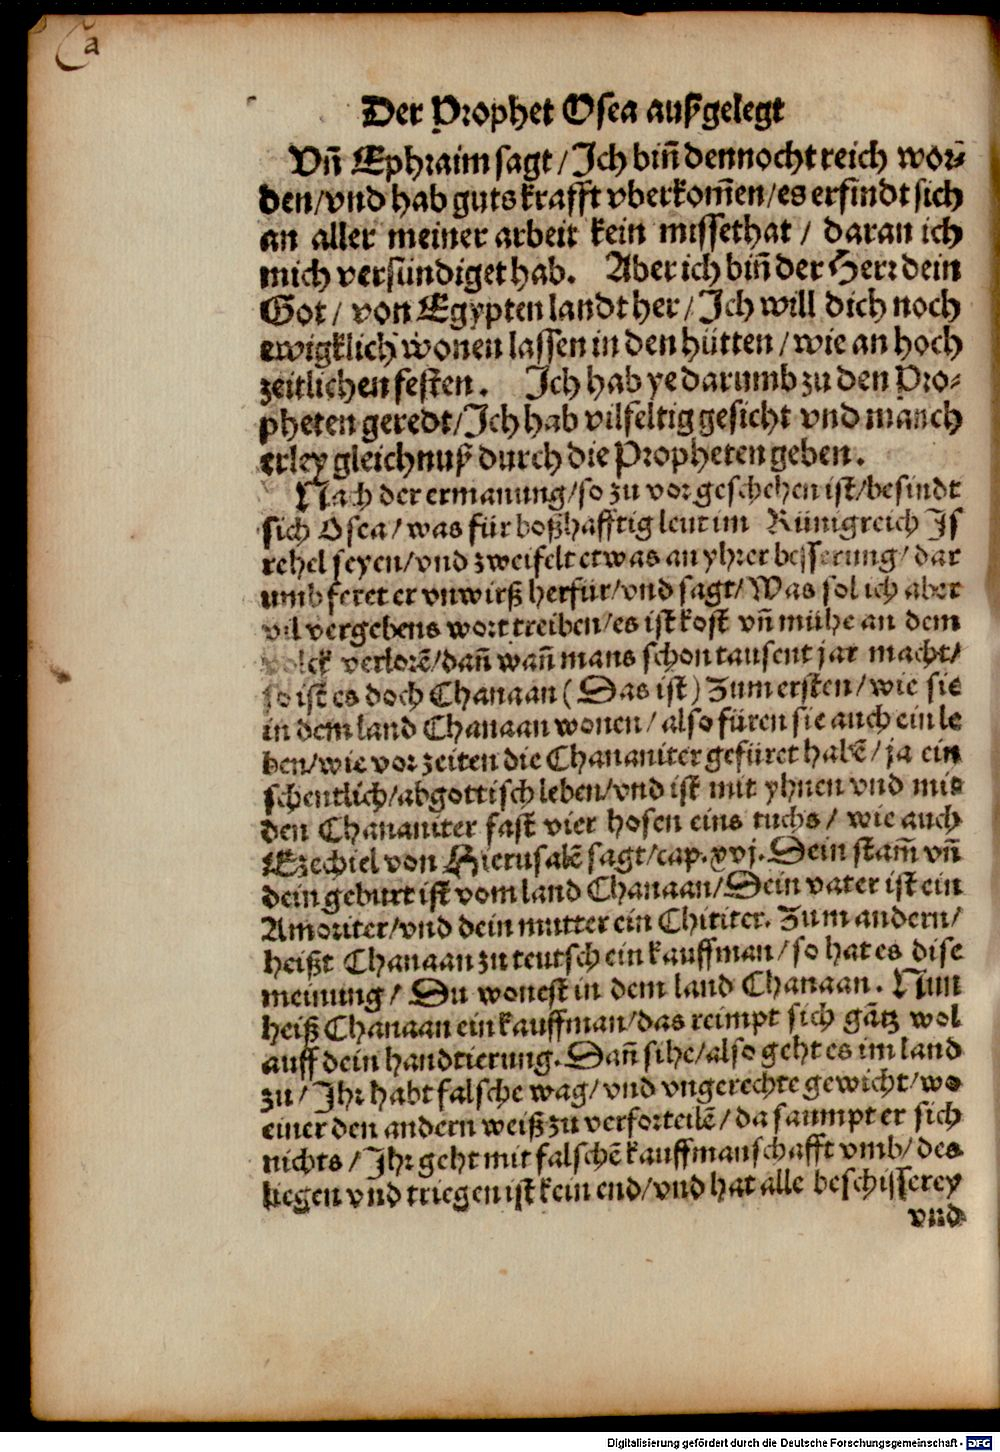 Ca
Der Prophet Osea außgelegt
Vñ Ephraim sagt/Ich biñ dennocht reich wor⸗
den/vnd hab guts krafft vberkom̃en/es erfindt sich
an aller meiner arbeit kein missethat/ daran ich
mich versündiget hab. Aber ich biñ der Herr dein
Got/ von Egypten landt her/Ich will dich noch
ewigklich wonen lassen in den hütten/wie an hoch
zeitlichen festen. Ich hab ye darumb zu den Pro⸗
pheten geredt/Ich hab vilfeltig gesicht vnd manch
erley gleichnuß durch die Propheten geben.
Nach der ermanung/so zu vor geschehen ist/besindt
sich Osea/was für boßhafftig leut im Künigreich Is
rehel seyen/vnd zweifelt etwas an yhrer besserung/dar
umb feret er vnwirß herfür/vnd sagt/Was sol ich aber
vil vergebens wort treiben/es ist kost vñ mühe an dem
volck verlorẽ/dañ wañ mans schon tausent jar macht/
so ist es doch Chanaan (Das ist) Zum ersten/wie sie
in dem land Chanaan wonen/also füren sie auch ein le
ben/wie vor zeiten die Chananiter gefüret habẽ/ja ein
schentlich/abgottisch leben/vnd ist mit yhnen vnd mit
den Chananiter fast vier hosen eins tuchs/ wie auch
Ezechiel von Hierusalẽ sagt/cap.xvj. Dein stam̃ vñ
dein geburt ist vom land Chanaan/Dein vater ist ein
Amoriter/vnd dein mutter ein Chititer. Zum andern/
heißt Chanaan zu teutsch ein kauffman/so hat es dise
meinung/ Du wonest in dem land Chanaan. Nun
heiß Chanaan ein kauffman/das reimpt sich gãtz wol
auff dein handtierung. Dañ sihe/also geht es im land
zu/Ihr habt falsche wag/vnd vngerechte gewicht/wo
einer den andern weiß zu verforteilẽ/da saumpt er sich
nichts/Ihr geht mit falschẽ kauffmanschafft vmb/des
liegen vnd triegen ist kein end/vnd hat alle beschisserey
vnd
Digitalisierung gefördert durch die Deutsche Forschungsgemeinschaft - DFG